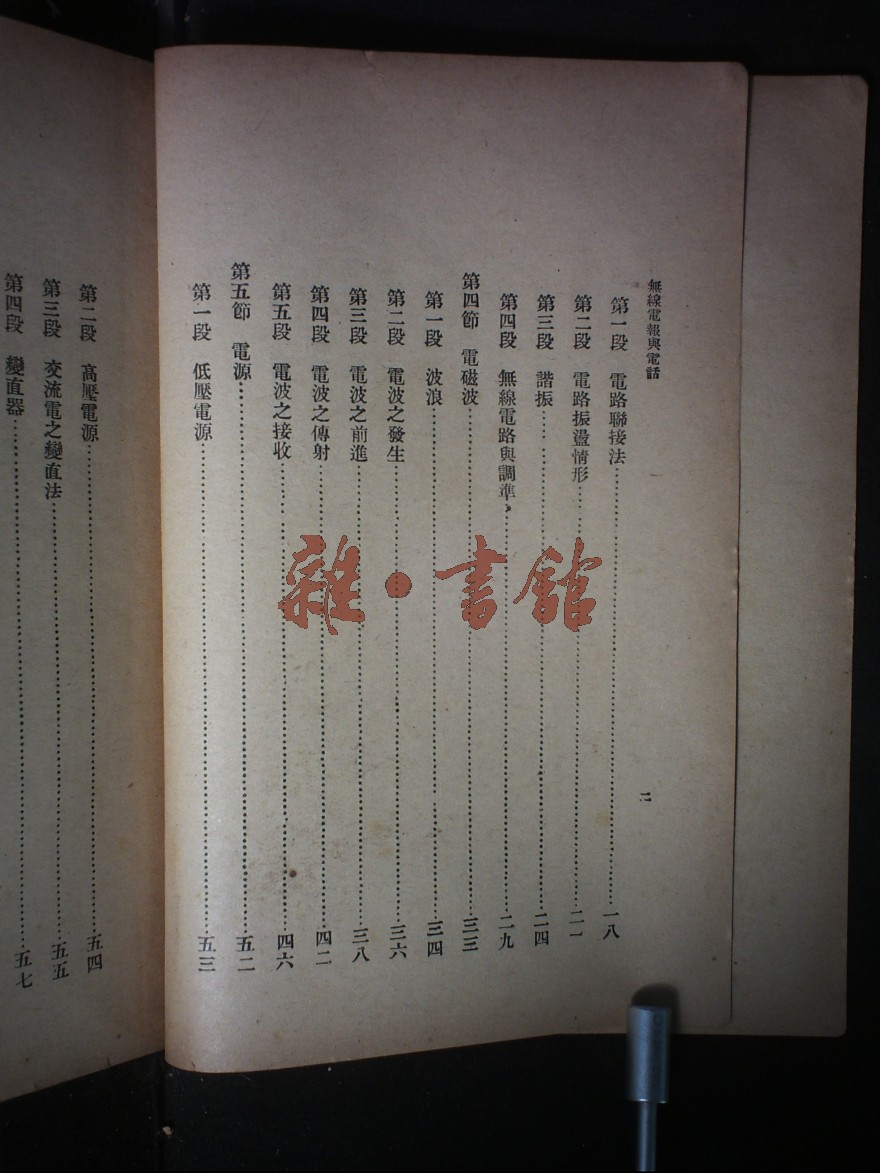 無線電報與電話
二
第一段 電路聯接法 一八
第二段 電路振盪情形 二一
第三段 諧振 二四
第四段 無線電路與調準 二九
第四節 電磁波 三三
第一段 波浪 三四
第二段 電波之發生 三六
第三段 電波之前進 三八
第四段 電波之傳射 四二
第五段 電波之接收 四六
第五節 電源 五二
第一段 低壓電源 五三
第二段 高壓電源 五四
第三段 交流電之變直法 五五
第四段 變直器 五七
雜·書館